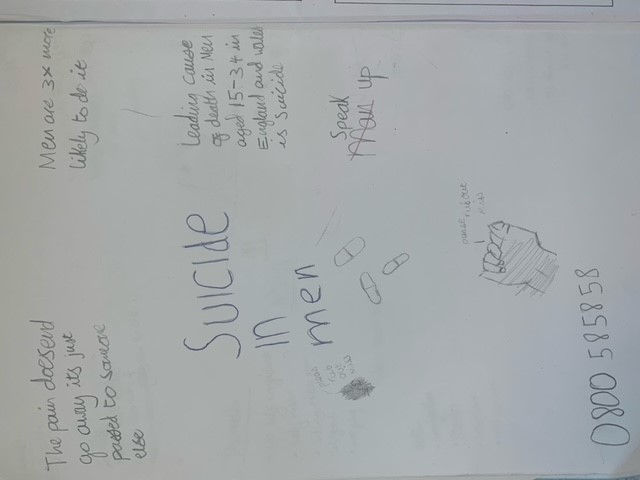 The pain doesent
go away its just
passed to someone
else
Men are 3x more
likely to do it
Leading cause
of death in Men
aged 15-34 in
England and wales
is Suicide
SUICIDE
IN
men
Speak
Man up
0800 585858